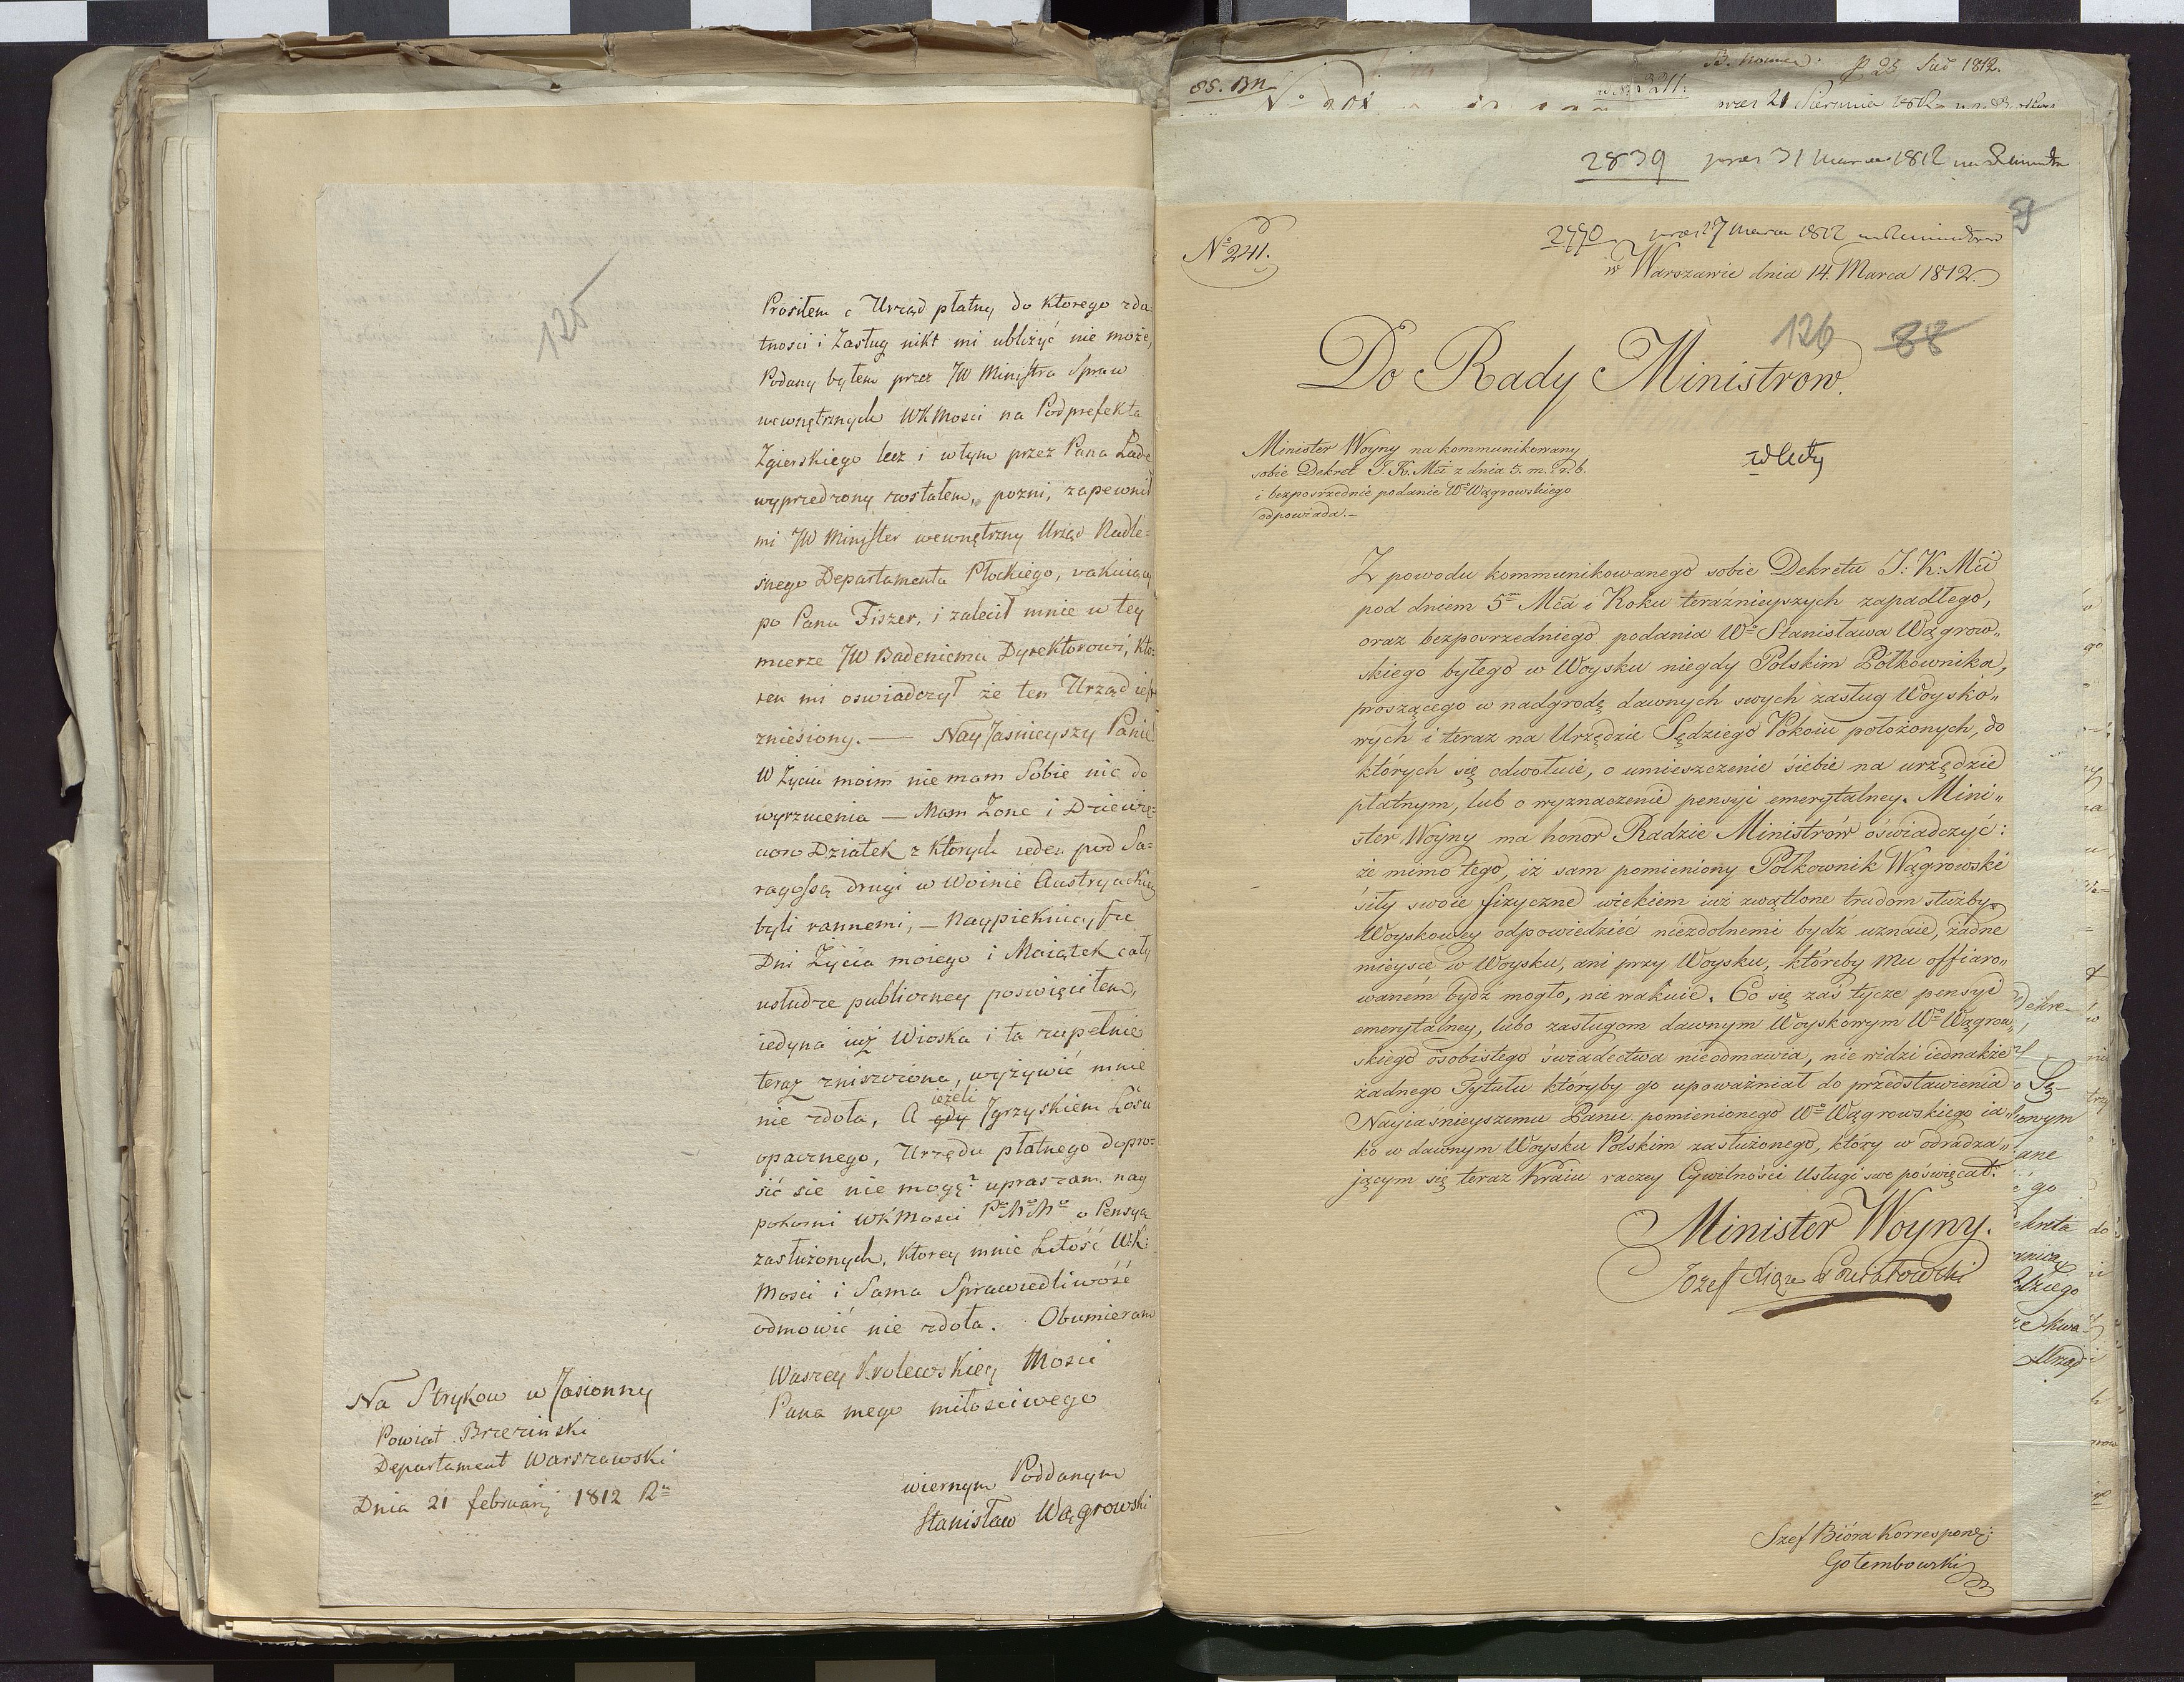 125
Prosiłem o Urząd płatny do ktorego zda-
tnosci i Zasług nikt mi ubliżyć nie może,
Podany byłem przez JW Ministra Spraw
wewnętrznych WKMosci na Podprefekta
Zgierskiego lecz i w tym przez Pana
wyprzedzony zostałem, pozni, zapewnił
mi JW Minister wewnętrzny Urząd Nadle-
snego Departamentu Płockiego, vakuiący
po Panu Fiszer, i zalecił mnie w tey
mierze JW Badeniemu Dyrektorowi, kto-
ren mi oswiadczył że ten Urząd iest
zniesiony. — NayJasnieyszy Panie
W Zyciu moim nie mam Sobie nic do
wyrzucenia — Mam Zone i Dziewię-
cioro Dziatek z ktorych ieden pod Sa-
ragossą drugi w Woinie Austryackiey
byli rannemi, — Naypieknieysze
Dni Życia moiego i Maiątek cały
usłudze publiczney poswięciłem,
iedyna iuż Wioska i ta zupełnie
teraz zniszczona, wyżywić mnie
nie zdoła, A gdy ieżeli Jgrzyskiem Losu
opacznego, Urzędu płatnego dopro-
sić sie nie mogę? upraszam nay
pokorni WKMosci o Pensyą
zasłużonych, ktorey mnie Litość W:K:
Mosci i Sama Sprawiedliwość
odmowić nie zdoła. Obumieram
Waszey Krolewskiey Mosci
Pana mego miłosciwego
wiernym Poddanym
Stanisław Wągrowski
Na Strykow w Jasionny
Powiat Brzezinski
Departament Warszawski
Dnia 21 februarij 1812 R
85. Bn
3211.
przez 21 Sierpnia
2839 przez 31 marca 1812
59
No 241.
2770 przez 27 marca 1812
w Warszawie dnia 14. Marca 1812.
126 88
Do Rady Ministrow.
Minister Woyny na kommunikowany
sobie Dekret J. K. Mci z dnia 5. m. i r. b.
i bezposrzednie podanie Wo Wągrowskiego
odpowiada.—
Z powodu kommunikowanego sobie Dekretu J: K: Mci
pod dniem 5m Mca i Roku teraźnieyszych zapadłego,
oraz bezposrzedniego podania Wo Stanisława Wągrow„
skiego byłego w Woysku niegdy Polskim Półkownika,
proszącego w nadgrodę dawnych swych zasług Woysko„
wych i teraz na Urzędzie Sędziego Pokoiu położonych, do
których się odwołuie, o umieszczenie siebie na urzędzie
płatnym, lub o wyznaczenie pensyi emerytalney. Mini„
ster Woyny ma honor Radzie Ministrów oświadczyć:
że mimo tego, iż sam pomieniony Półkownik Wągrowski
siły swoie fizyczne wiekiem iuż zwątlone trudom służby
Woyskowey odpowiedzieć niezdolnemi bydź uznaie, żadne
mieysce w Woysku, ani przy Woysku, któreby mu offiaro„
wanem bydź mogło, nie wakuie. Co się zaś tycze pensyi
emerytalney, lubo zasługom dawnym Woyskowym Wo Wągrow„
skiego osobistego świadectwa nieodmawia, nie widzi iednakże
żadnego Tytułu któryby go upoważniał do przedstawienia
Nayiaśnieyszemu Panu pomienionego Wo Wągrowskiego ia„
ko w dawnym Woysku Polskim zasłużonego, który w odradza„
jącym się teraz Kraiu raczey Cywilności Usługi swe poświęcał:
Minister Woyny.
Jozef Xiąże Poniatowski
Szef Bióra Korrespond:
Gołembowski